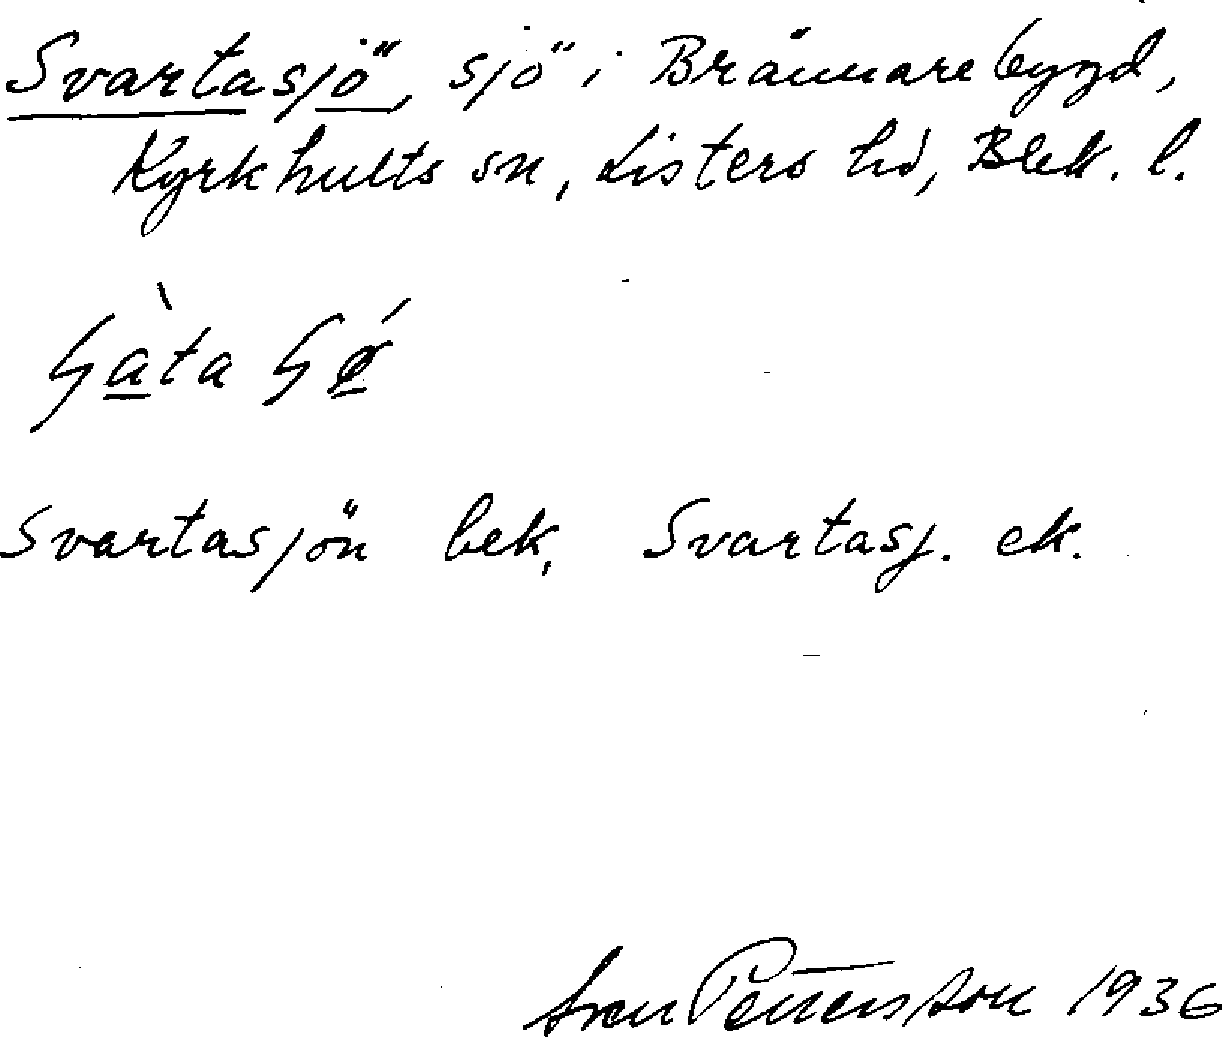 Svartasjö, sjö i Brännarebygd,
Kyrkhults sn, Listers hd, Blek. l.
Svartasjön bek, Svartasj. ek.
Sven Pettersson 1936